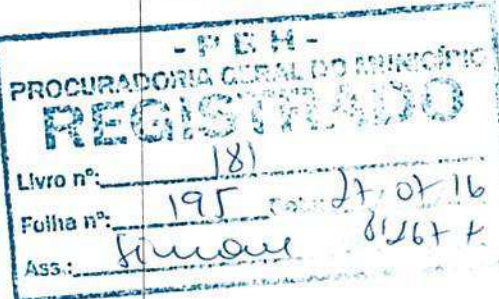 - P B H -
PROCURADORIA GERAL DO MUNICÍPIO
REGISTRADO
Livro nº: 181
Folha nº: 195 27, 07 16
Ass.: Simone